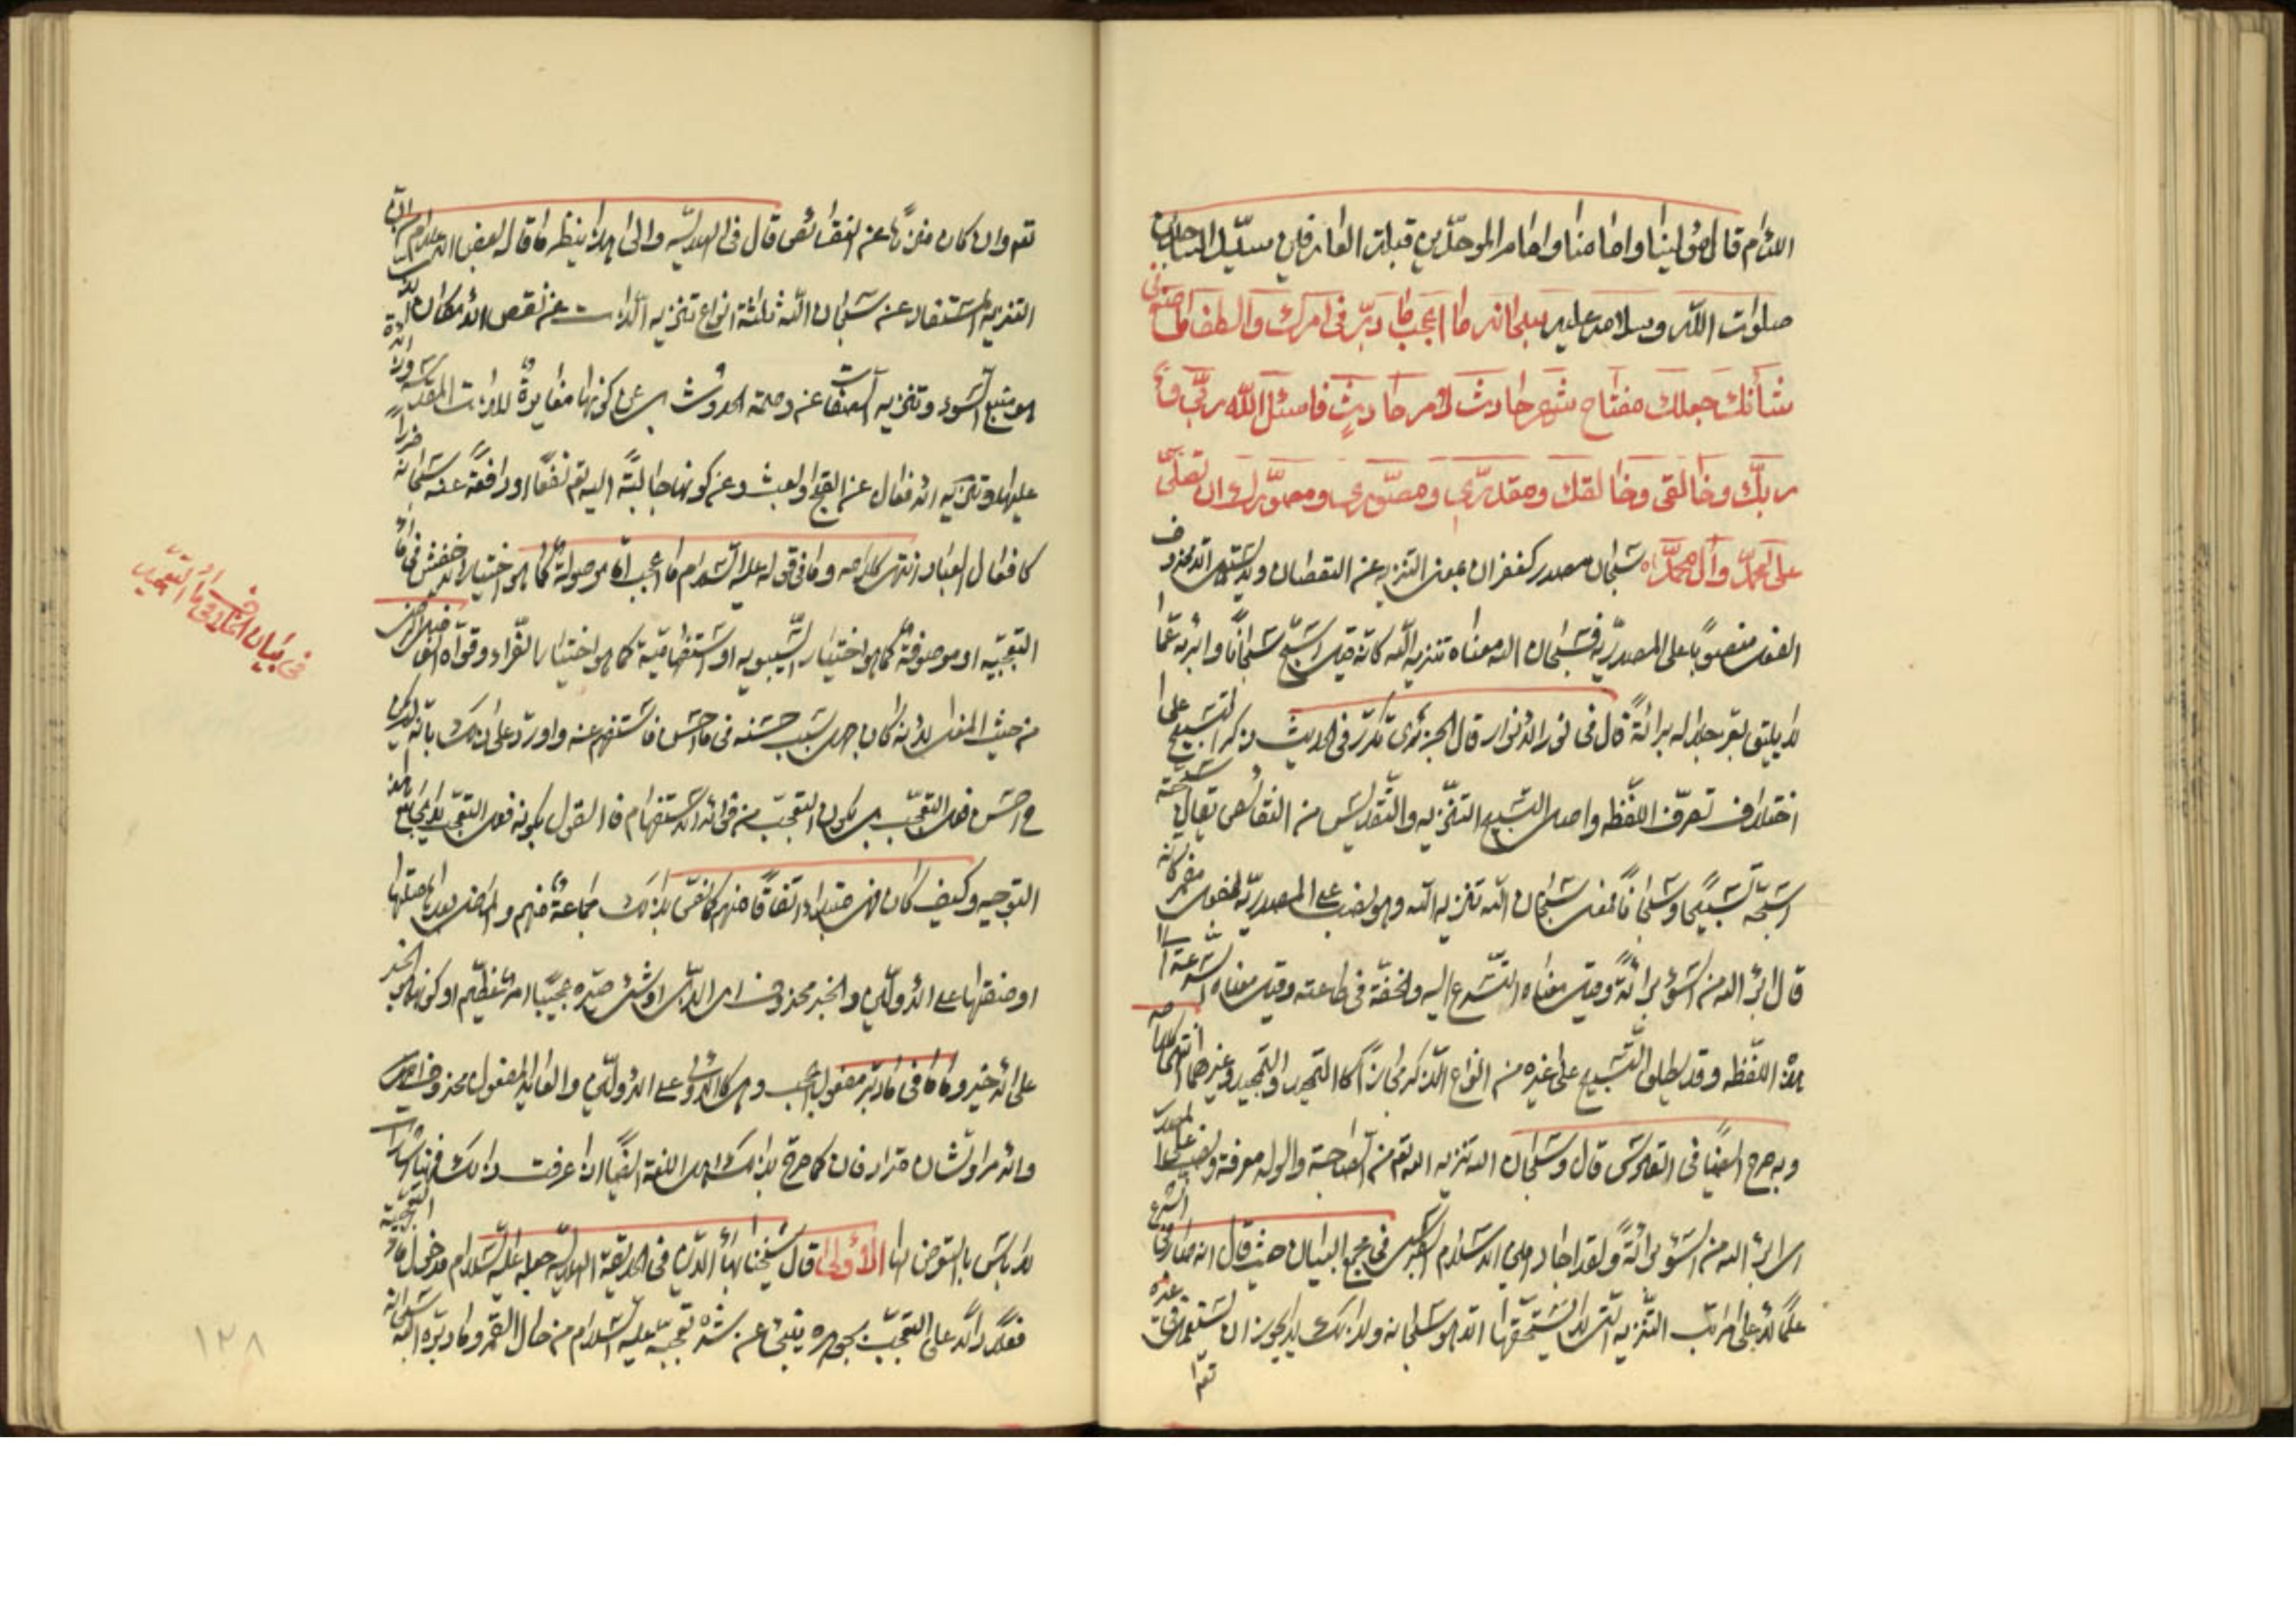 اللئام قال مولينا وامامنا وامام الموحدين قبلة العارفين سيد الساجدين
صلوات الله وسلامه عليه سبحانه ما اعجب ما دبّر فى امرك والطف ما صنع فى
شأنك جعلك مفتاح شهر حادث لأمر حادث فاسئل الله ربّى و
ربّك وخالقى وخالقك ومقدّرى ومصوّرى ومصوّرك ان تصلّى
على محمّد وآل محمّد سبحان مصدر كغفران بمعنى التنزيه عن النقصان ولا يستعمل الا محذوف
الفعل منصوبًا على المصدريّة فسبحان الله معناه تنزيه الله كانه قيل اسبّح سبحانًا وابرئه عمّا
لا يليق بعزّ جلاله براءةً قال فى نور الانوار قال الجزرى تكرّر فى الحديث ذكر التسبيح على
اختلاف تصرّف اللفظه واصل التسبيح التنزيه والتقديس من النقائص تقال سبّحته
اسبّحه تسبيحًا وسبحانًا فمعنى سبحان الله تنزيه الله وهو نصب على المصدريّة لفعل مضمر كانه
قال ابرئ الله من السوء براءةً وقيل معناه التسرّع اليه والخفّة فى طاعته وقيل معناه السرعة الى
هذه اللفظه وقد يطلق التسبيح على غيره من انواع الذكر مجازًا كالتحميد والتمجيد وغيرهما انتهى كلامه
وبه صرّح ايضًا فى القاموس قال وسبحان الله تنزيه الله تع من الصاحبة والولد معرفة ونصب على المصدر
اى ابرئ الله من السوء براءةً ولقد اجاد امين الاسلام الطبرسى فى مجمع البيان حيث قال انه صار فى الشرع
علمًا لاعلى مراتب التنزيه التى لا يستحقّها الا هو سبحانه ولذلك لا يجوز ان يستعمل فى غيره
تعم
تعم وان كان منزّهًا عن النقائص قال فى الهلاليّه والى هذا ينظر ما قال بعض الاعلام ان
التنزيه المستفاد عن سبحان الله ثلثة انواع تنزيه الذات عن نقص الامكان الذى
هو منبع السوء وتنزيه الصفات عن وصمة الحدوث بل عن كونها مغايرةً للذات المقدسه وزائدة
عليها وتنزيه الافعال عن القبح والعبث وعن كونها جالبةً اليه تع نفعًا او دافعةً عنه سبحانه ضررًا
كافعال العباد انتهى كلامه وما فى قوله عليه السلام ما اعجب امّا موصولة كما هو اختيار الاخفش فى ما
التعجّبيه او موصوفة كما هو اختيار السيبويه او استفهاميّة كما هو اختيار الفرّاء وقوّاه الفاضل الرضى
من حيث المعنى لانه كان جهل سبب حسنه فى ما احسن فاستفهم عنه واورد على ذلك بانه
ح احسن فعل التعجّب بل يكون التعجّب من فحوى الاستفهام فالقول بكونه فعل التعجّب لا يجامع هذا
التوجيه وكيف كان فهى مبتداء اتفاقًا منهم كما نصّ بذلك جماعة منهم والماضى بعدها صلتها
او صفتها على الاوّلين والخبر محذوف اى الذى او شئ صيّره عجيبًا امر عظيم او كونها الخبر
على الاخير وما فى ما دبّر مفعول اعجب وهى كالاولى على الاوّلين والعائد المفعول محذوف
والامر والشان مترادفان كما صرّح بذلك اهل اللغة ايضًا اذا عرفت ذلك فهنا اشارات
لا بأس بالتعرّض لها الأولى قال شيخنا بهاء الدين فى الحديقة الهلاليّه جعله عليه السلام مدخول ما التعجّبيّه
فعلًا دالًا على التعجّب بجوهره ينبئ عن شدّة تعجّبه عليه السلام من حال القمر وما دبّره الله سبحانه
فى بيان الخلاف فى ما التعجّبيه
١٢٨